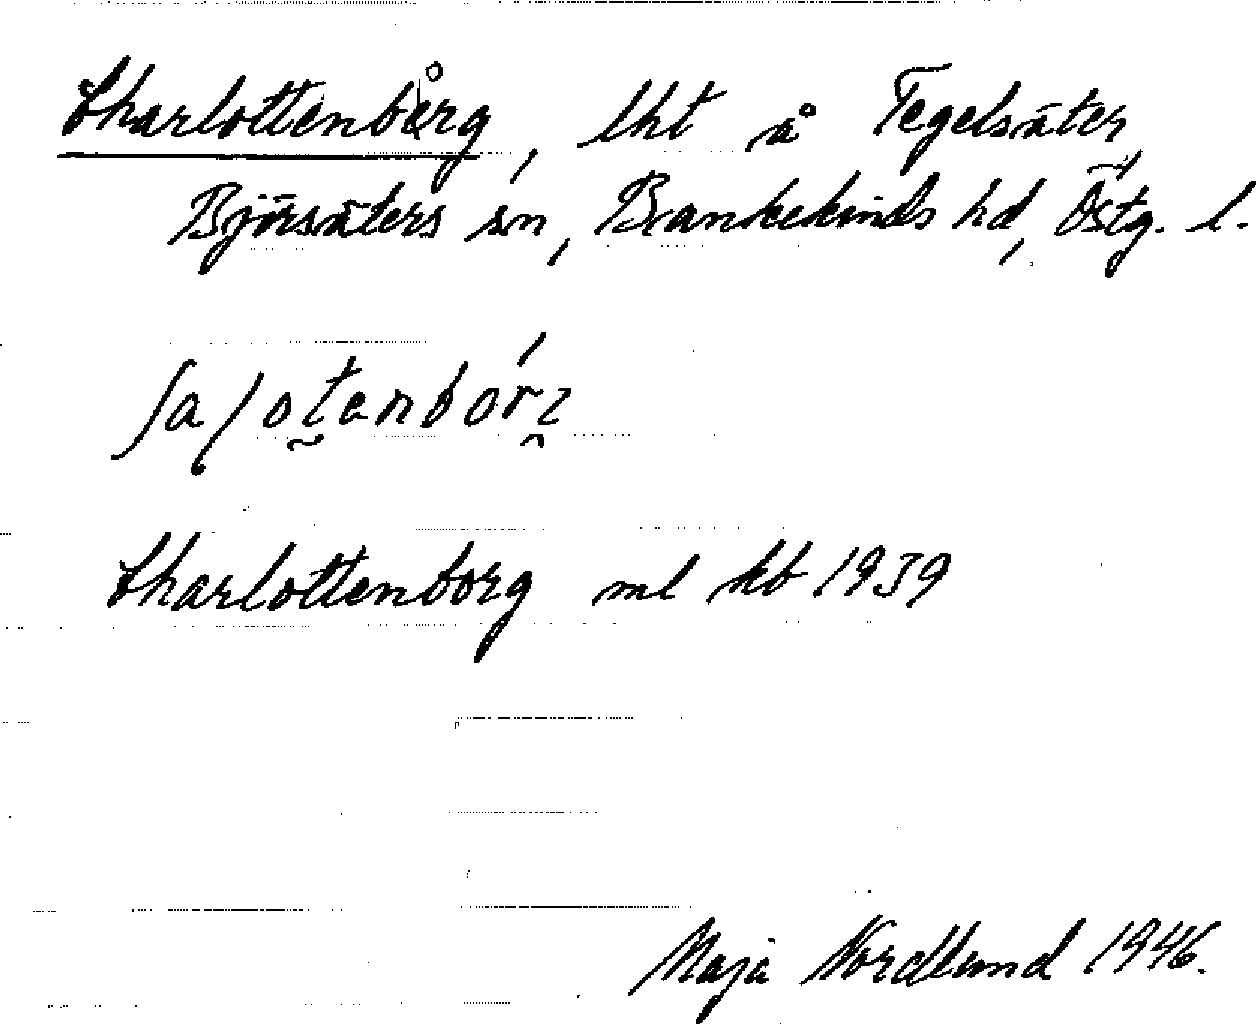 Charlottenborg, lht å Tegelsäter
Björsäters sn, Bankekinds hd, Östg. l.
Charlottenborg ml kb 1939
Maja Nordlund 1946.